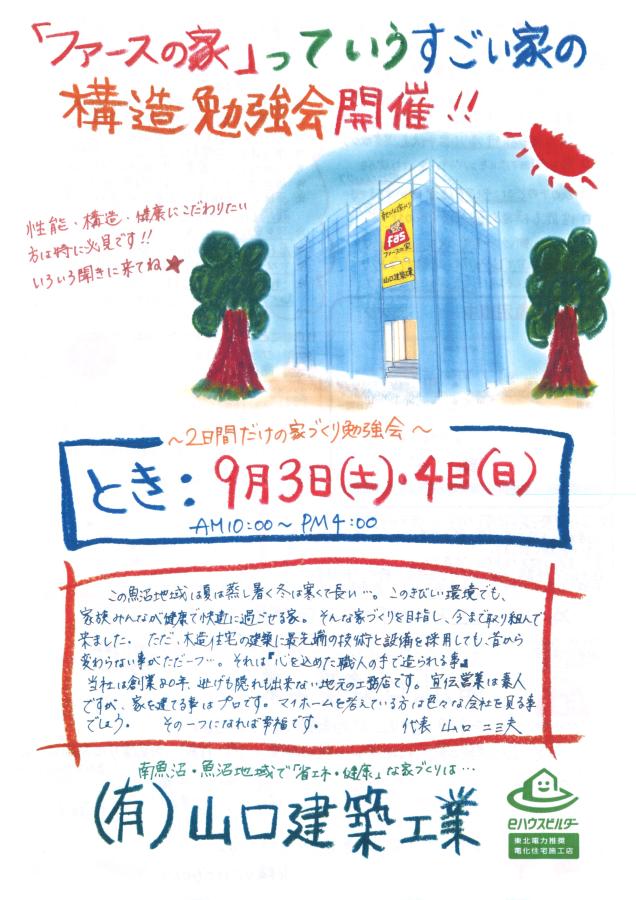 「ファースの家」っていうすごい家の
構造勉強会開催!!
性能・構造・健康にこだわりたい
方は特に必見です!!
いろいろ聞きに来てね★
fas
ファースの家
山口建築工業
~2日間だけの家づくり勉強会~
とき:9月3日(土)・4日(日)
AM10:00~PM4:00
この魚沼地域は夏は蒸し暑く冬は寒くて長い…。このきびしい環境でも、
家族みんなが健康で快適に過ごせる家。そんな家づくりを目指し、今まで取り組んで
来ました。ただ、木造住宅の建築に最先端の技術と設備を採用しても、昔から
変わらない事がただ一つ…。それは『心を込めた職人の手で造られる事』
当社は創業80年、逃げも隠れも出来ない地元の工務店です。宣伝営業は素人
ですが、家を建てる事はプロです。マイホームを考えている方は色々な会社を見る事
でしょう。その一つになれば幸福です。代表 山口 二三夫
南魚沼・魚沼地域で「省エネ・健康」な家づくりは…
(有)山口建築工業
eハウスビルダー
東北電力推奨
電化住宅施工店